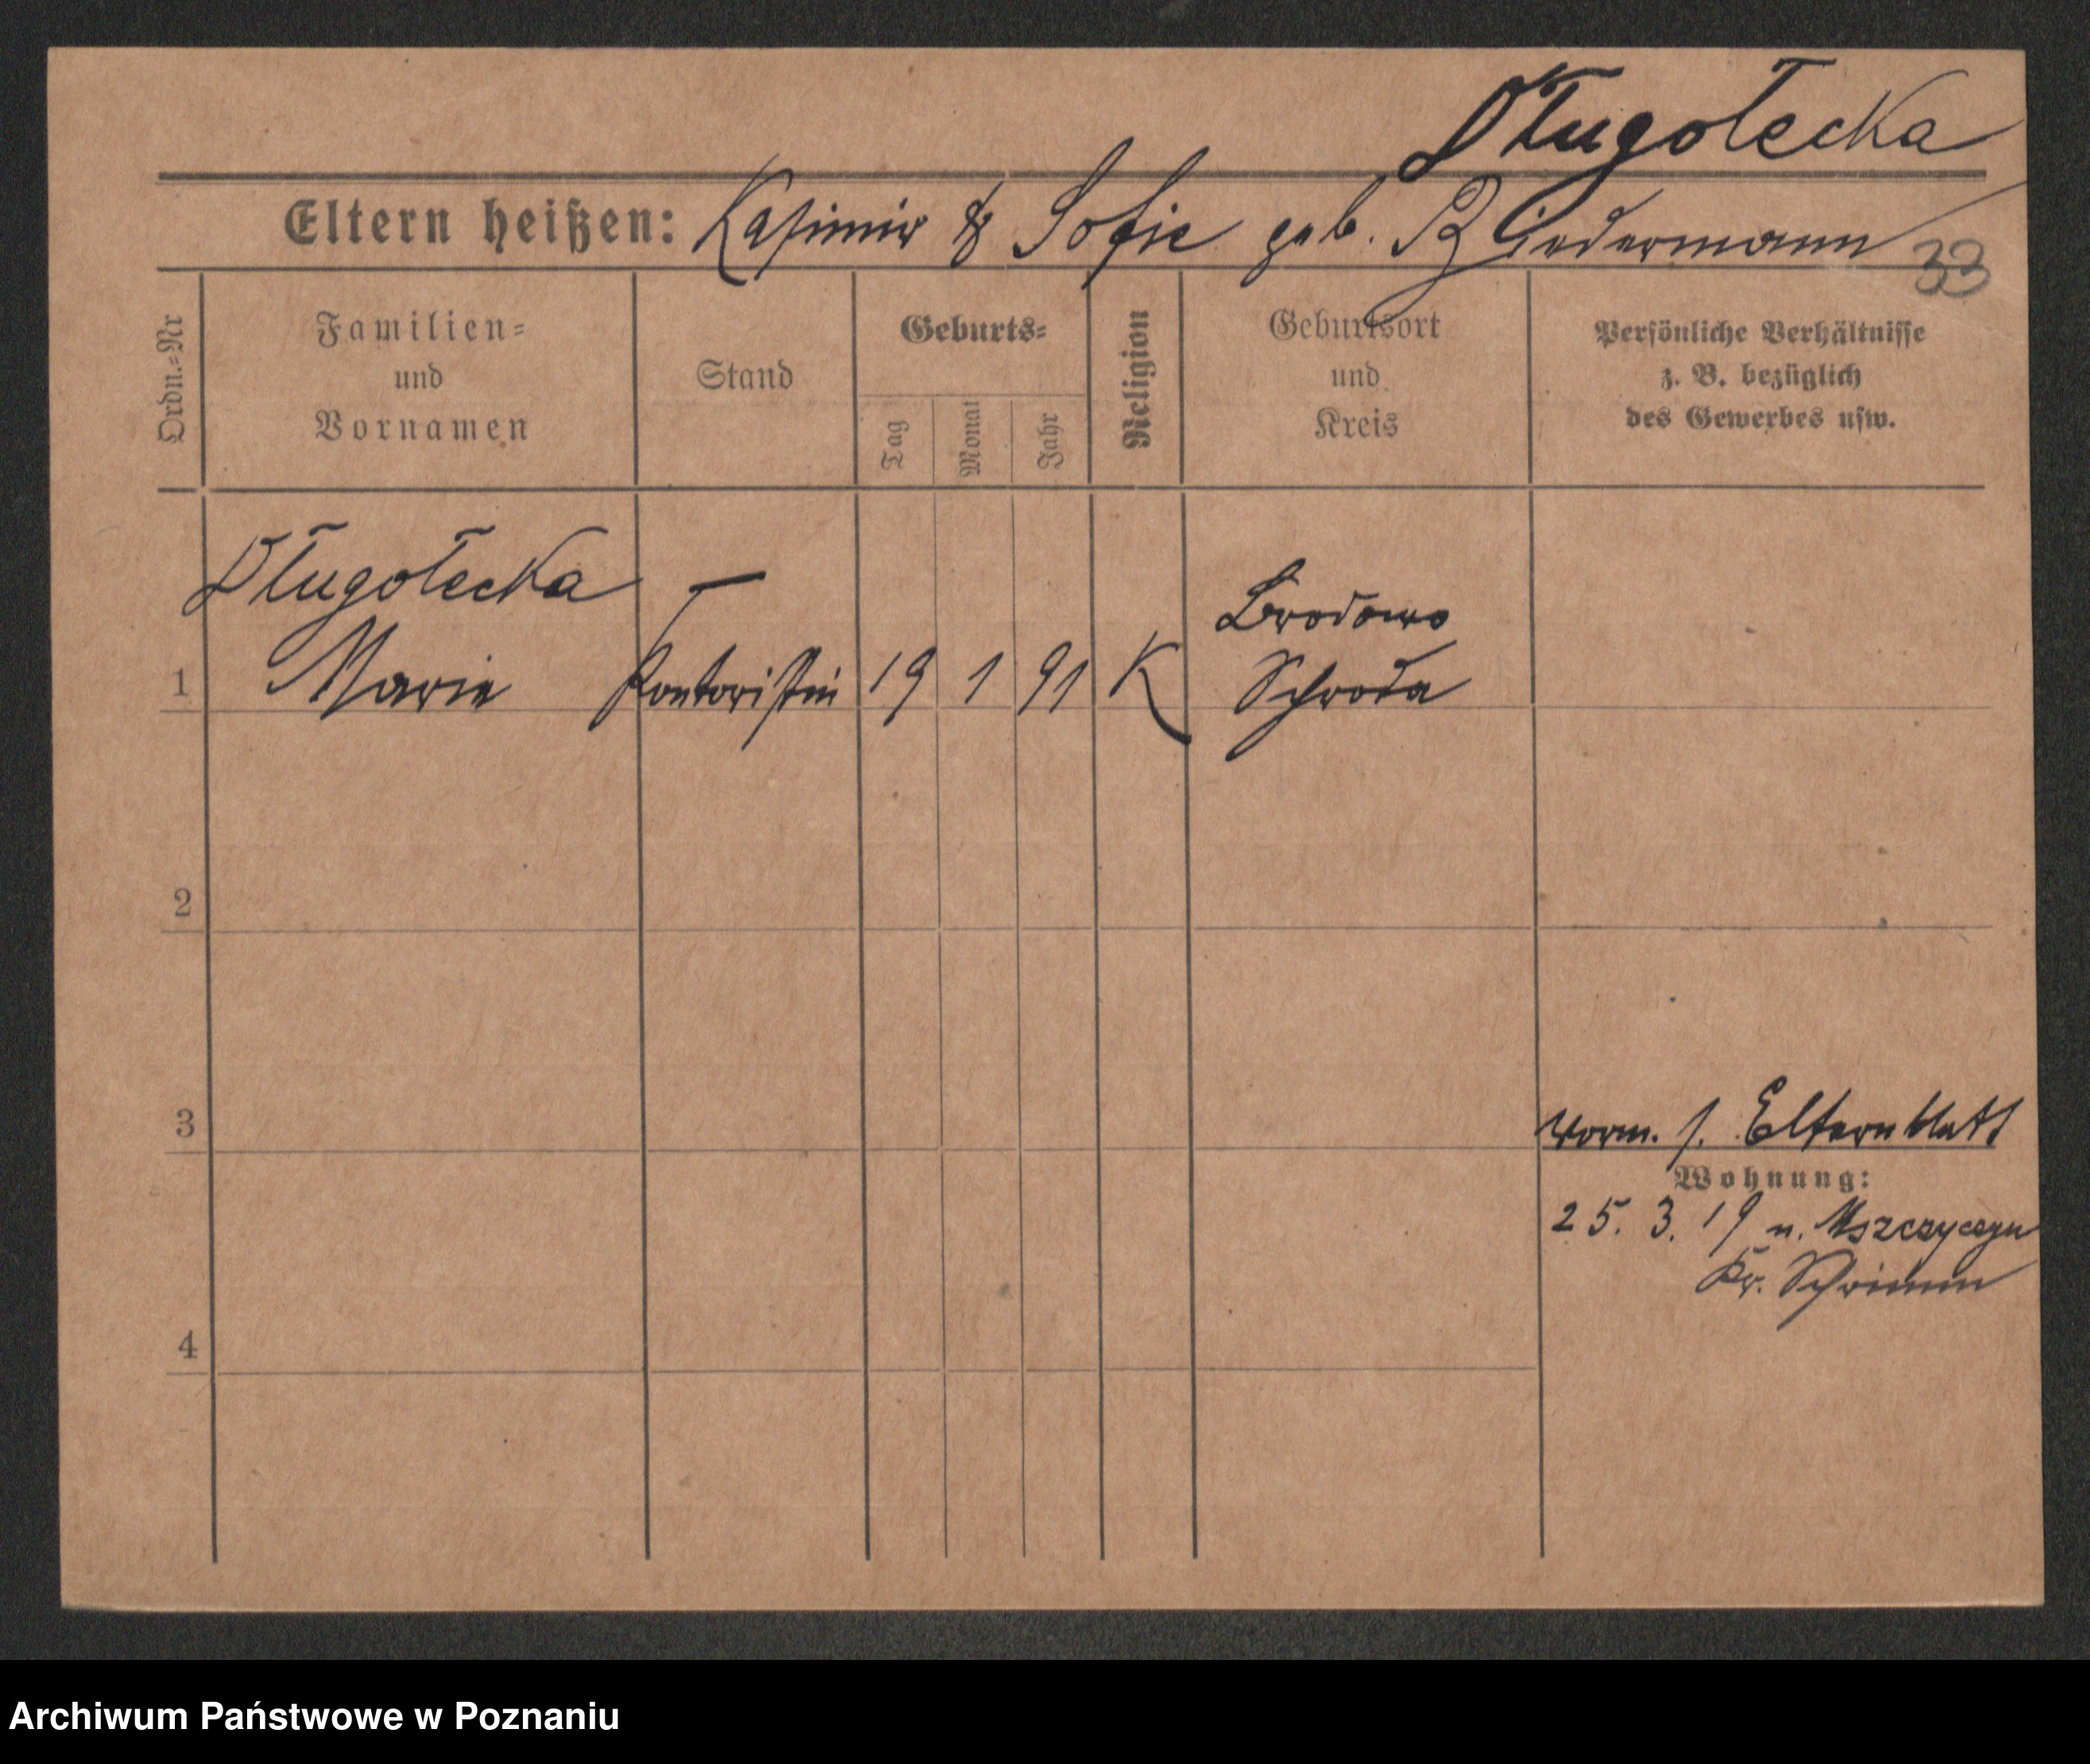 Długołecka
Eltern heißen: Kasimir & Sofie geb. Biedermann
33
Ordn.-Nr
Familien-
und
Vornamen
Stand
Geburts-
Tag
Monat
Jahr
Religion
Geburtsort
und
Kreis
Persönliche Verhältnisse
z. B. bezüglich
des Gewerbes usw.
Długołecka —
Brodowo
1 Marie Kontoristin 19 1 91 K Schroda
2
3
vorm. s. Elternblatt
Wohnung:
25. 3. 19 n. Mszczyczyn
Kr. Schrimm
4
Archiwum Państwowe w Poznaniu